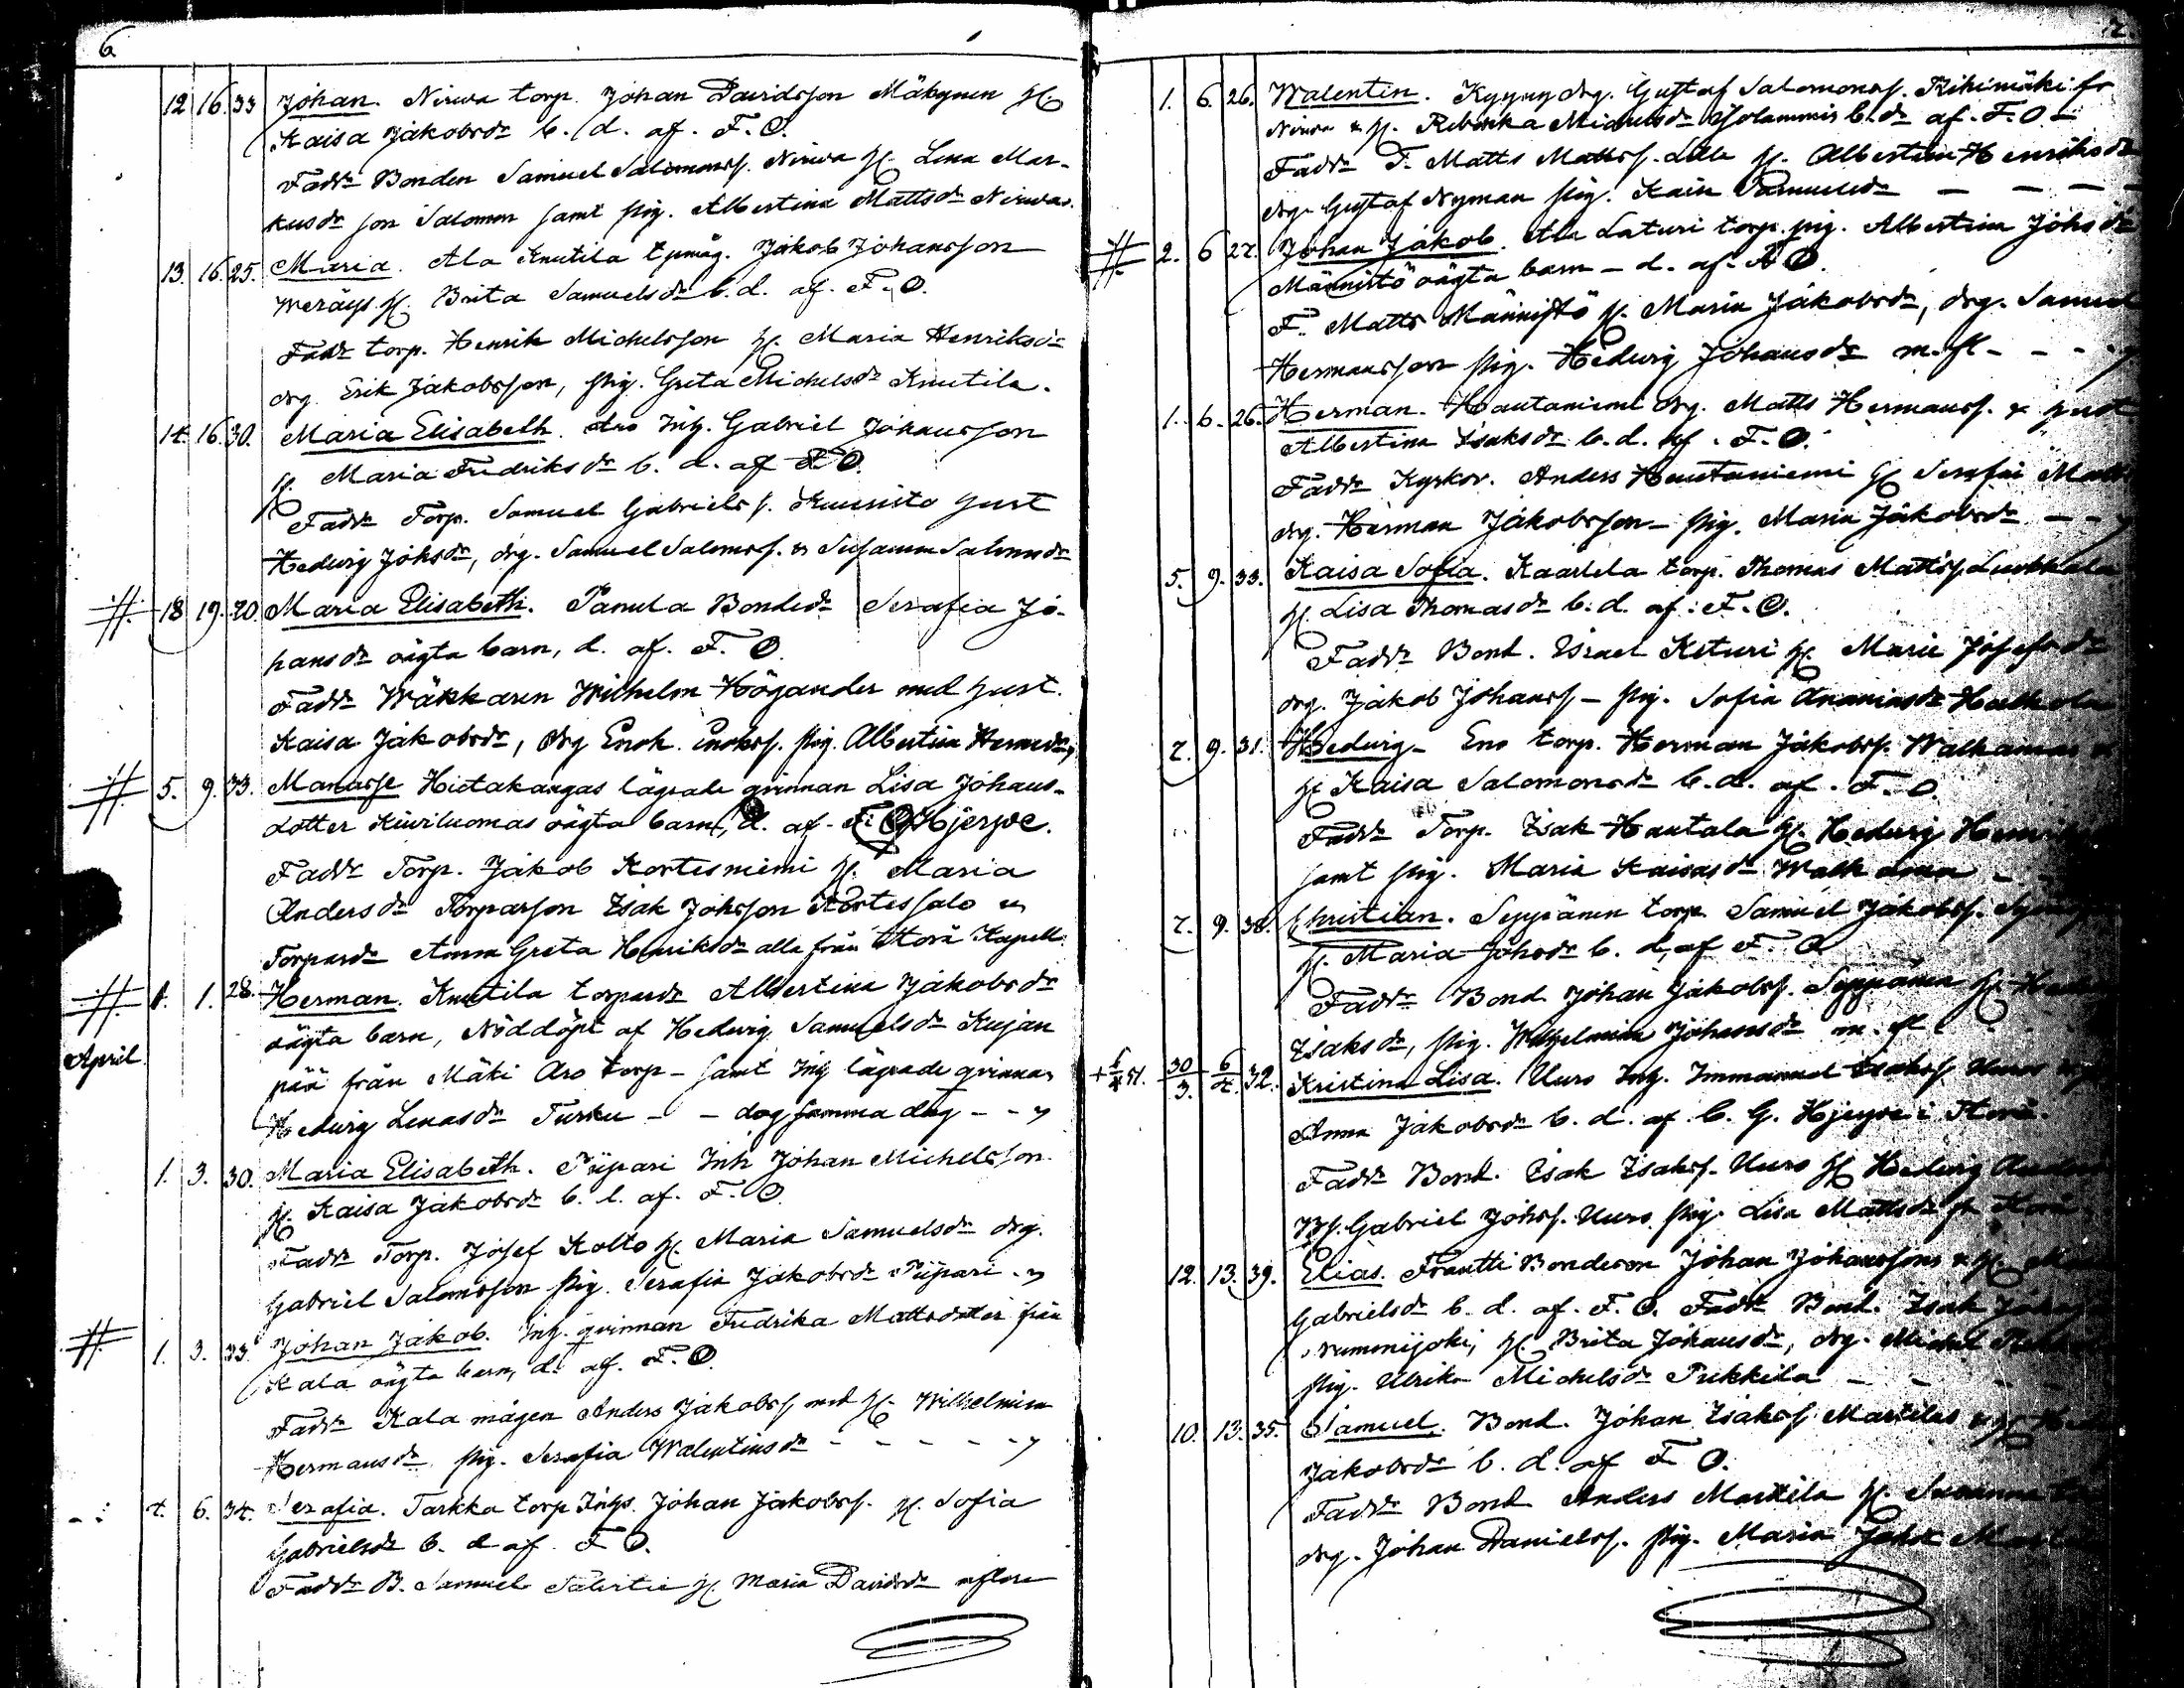 6
12 16. 33 Johan. Nirwa torp. Johan Davidsson Mäkynen H
Kaisa Jakobsdr b. d. af. F. O.
Faddr Bonden Samuel Salomonss. Nirwa H. Lena Mar-
kusdr son Salomon samt pig. Albertina Mattsdr Nirwa.
13. 16. 25. Maria. Ala Knutila tpmåg. Jakob Johansson
H. Brita Samuelsdr b. d. af. F. O.
Faddr torp. Henrik Michelsson H. Maria Henriksdr
drg. Erik Jakobsson, pig. Greta Michelsdr Knutila.
14. 16. 30. Maria Elisabeth. Aro Inh. Gabriel Johansson
H. Maria Fredriksdr b. d. af F. O.
Faddr Torp. Samuel Gabrielss. Kuusisto hust
Hedwig Johsdr, drg. Samuel Saloms. & Susanna Salomsdr
18 19. 20. Maria Elisabeth. Panula Bondedr Serafia Jo-
hansdr oägta barn, d. af. F. O.
Faddr Wäkkaren Wilhelm Högander med hust.
Kaisa Jakobsdr, drg Enok Enokss. pig. Albertina Hermsdr,
5. 9. 33. Manasse Hietakangas lägrade qvinnan Lisa Johans-
dotter Kiviluomas oägta barn, d. af. F. O. Hjerpe.
Faddr Torp. Jakob Kortesniemi H. Maria
Andersdr Torparson Isak Johsson Kortessalo &
Torparedr Anna Greta Henriksdr alla från Storå Kapell.
1. 1. 28. Herman. Knutila torparedr Albertina Jakobsdr
oägta barn, Nöddöpt af Hedwig Samuelsdr Kujan
April.
pää från Mäki Aro torp - samt Inh lägrade qvinnan
Hedwig Lenasdr Turku - - dog samma dag - - "
1. 3. 30. Maria Elisabeth. Piipari Inh Johan Michelsson
H. Kaisa Jakobsdr b. d. af. F. O.
Faddr Torp. Josef Kolto H. Maria Samuelsdr drg.
Gabriel Salomsson pig. Serafia Jakobsdr Piipari. "
1. 3. 33. Johan Jakob. Inh. qvinnan Fredrika Mattsdotter från
Kala oägta barn, d. af. F. O.
Faddr Kala mågen Anders Jakobss med H. Wilhelmina
Hermansdr pig. Serafia Walentinsdr - - - - - "
4. 6. 34. Serafia. Tarkka torp Inhs. Johan Jakobss. H. Sofia
Gabrielsdr b. d. af. F. O.
Faddr B. Samuel H. Maria Davidsdr m flere
7
1. 6. 26. Walentin. Kyyny drg. Gustaf Salomonss. Riihimäki fr
Nirwa & H. Rebekka Michelsdr b. d. af. F. O.
Faddr T. Matts Mattss. Lilla H. Albertina Henriksdr
drg. Gustaf Nyman pig. Kaisa Samuelsdr - - - -
2. 6 27. Johan Jakob. Ala Laturi torp. pig. Albertina Johsdr
Männistö oägta barn - d. af. F. O.
F. Matts Männistö H. Maria Jakobsdr, drg. Samuel
Hermansson pig. Hedwig Johansdr m. fl - - - "
1. 6. 26. Herman. Hautaniemi drg. Matts Hermanss. & hust
Albertina Isaksdr b. d. af. F. O.
Faddr Kyrkov. Anders Hautaniemi H Serafia
drg. Herman Jakobsson - pig. Maria Jakobsdr - - "
5. 9. 33. Kaisa Sofia. Kaartela torp. Thomas Mattss Luokkala
H. Lisa Thomasdr b. d. af. F. O.
Faddr Bond. Israel Keturi H. Maria Josefsdr
drg. Jakob Johanss - pig. Sofia Ananiasdr
7. 9. 31. Hedwig - Eno torp. Herman Jakobss. Walkama
H Kaisa Salomonsdr b. d. af. F. O.
Faddr Torp. Isak Hautala H. Hedwig
samt pig. Maria Kaisasdr Walkama - -
7. 9. 38. Christian. Seppänen torp. Samuel Jakobss.
H. Maria Johsdr b. d. af F. O
Faddr Bond Johan Jakobss. Seppänen H.
Isaksdr, pig. Wilhelmina Johansdr m. fl
30/3. 6/4. 32. Kristina Lisa. Uuro Inh. Immanuel Isakss. Uuro
Anna Jakobsdr b. d. af. C. G. Hjerpe i Storå.
Faddr Bond. Isak Isakss. Uuro H Hedwig
Bs. Gabriel Johss. Uuro pig. Lisa Mattsdr fr Storå
12. 13. 39. Elias. Frantti Bondeson Johan Johanssons & H.
Gabrielsdr b. d. af. F. O. Faddr Bond. Isak
Nummijoki, H. Brita Johansdr, drg. Michel
pig. Ulrika Michelsdr Prekkila - - -
10. 13. 35. Samuel. Bond. Johan Isakss Markilas & H
Jakobsdr b. d. af F. O.
Faddr Bond Anders Markila H. Susanna
drg. Johan Danielss. pig. Maria